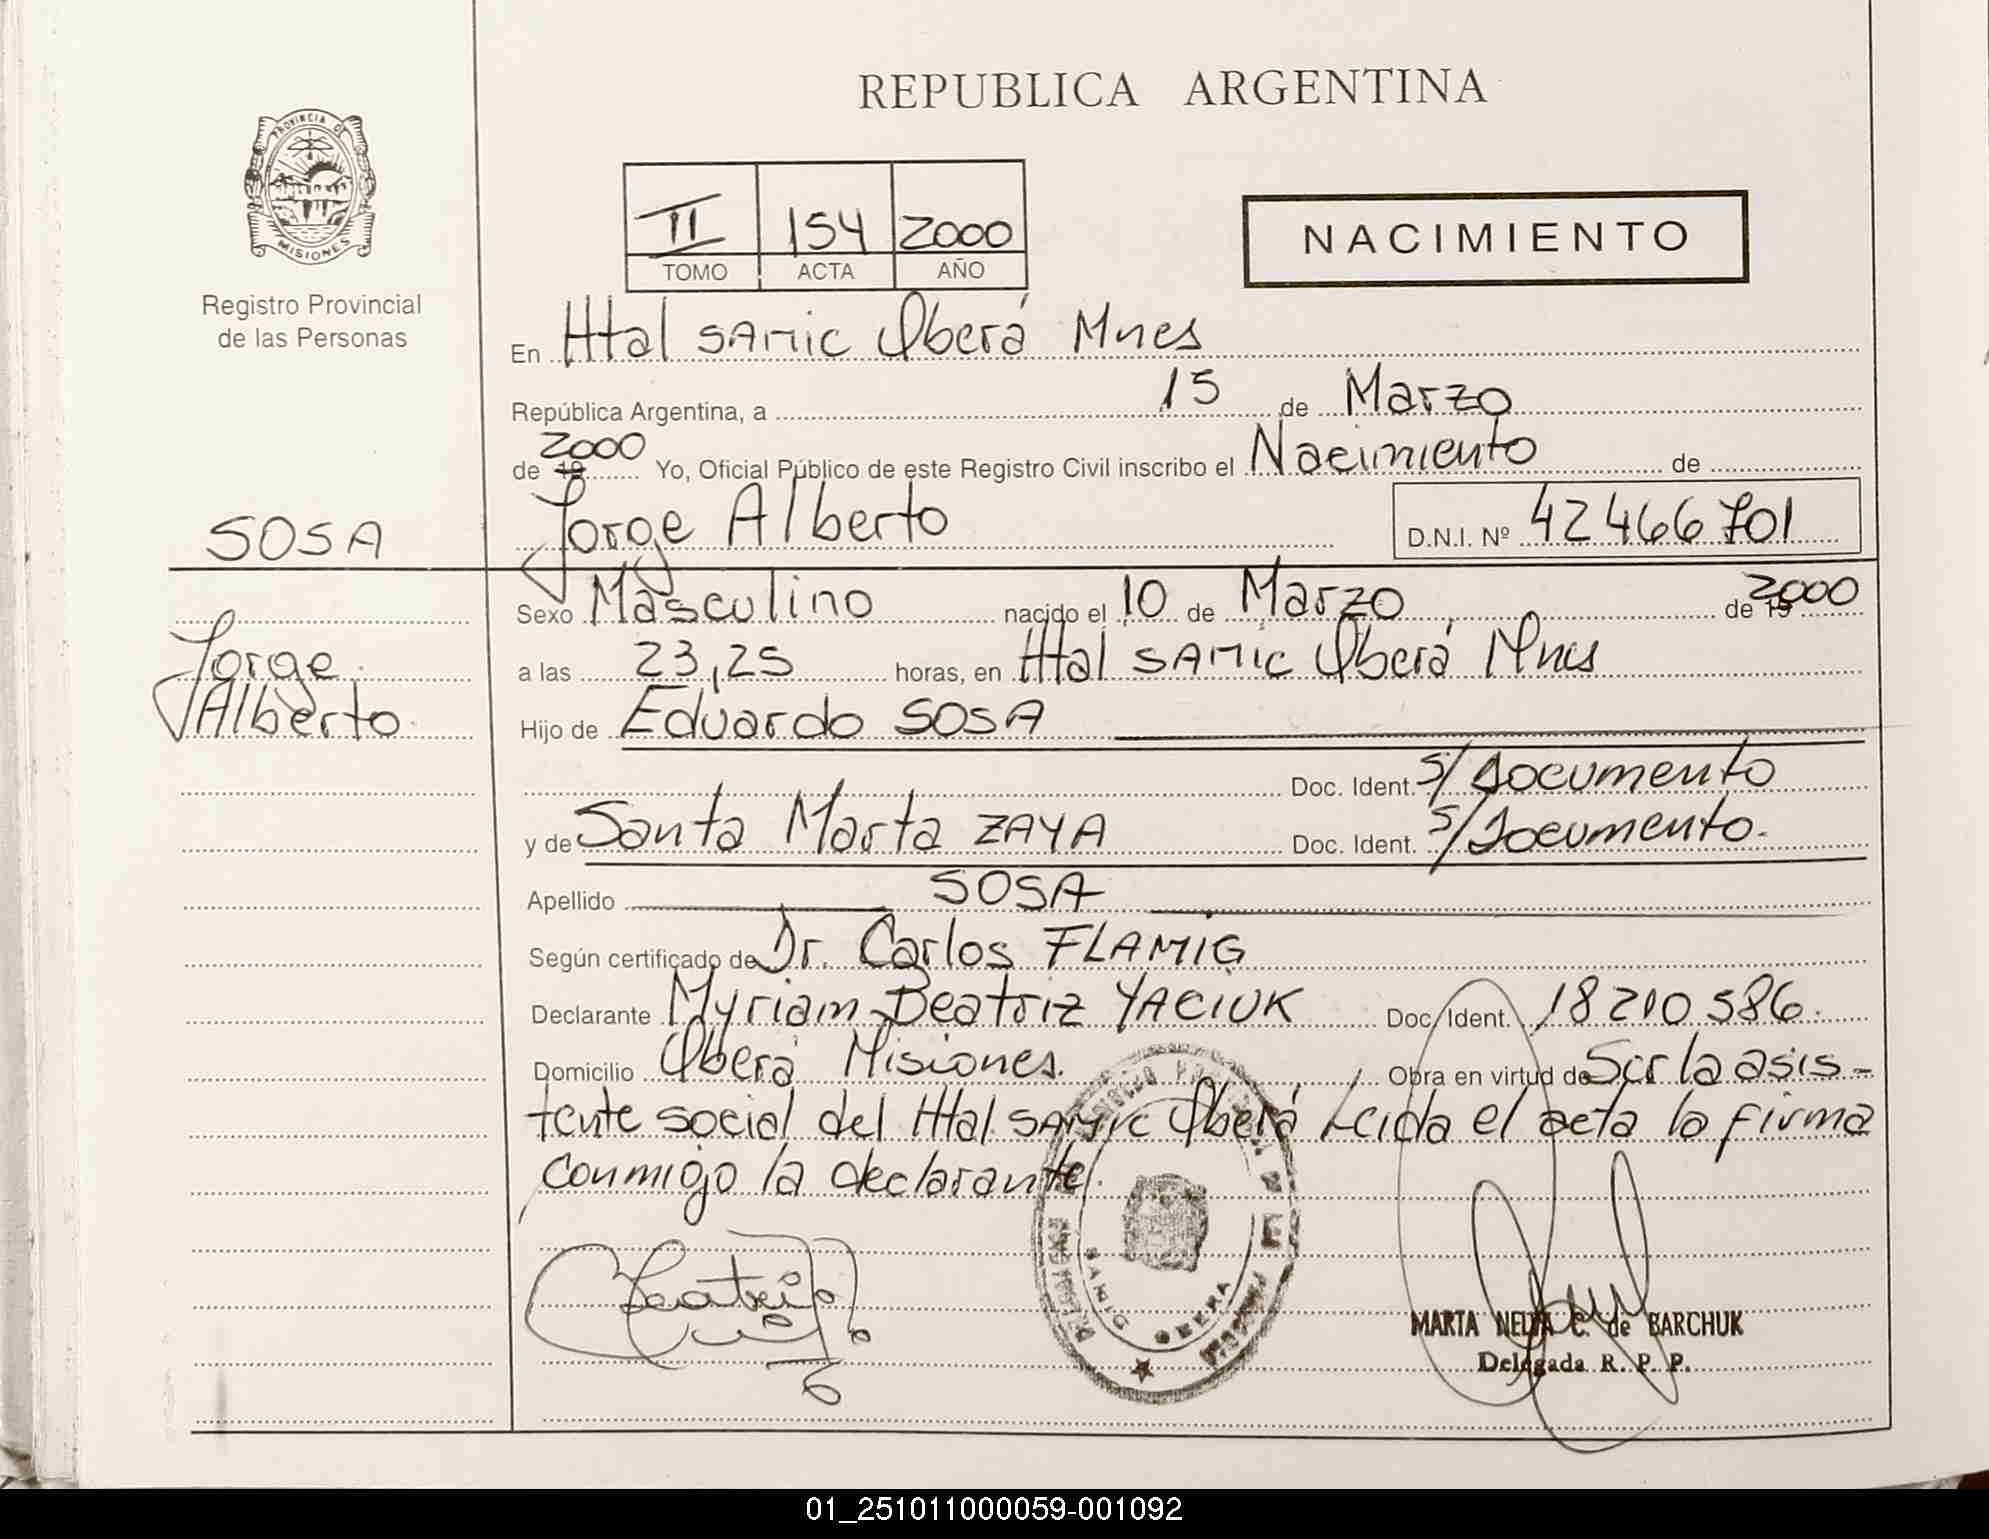 REPUBLICA ARGENTINA
PROVINCIA DE
MISIONES
Registro Provincial
de las Personas
II 154 2000
TOMO ACTA AÑO
NACIMIENTO
En Htal SAMIC Oberá Mnes
República Argentina, a 15 de Marzo
de 19 2000 Yo, Oficial Público de este Registro Civil inscribo el Nacimiento de
Jorge Alberto D.N.I. Nº 42466701
SOSA
Jorge
Alberto
Sexo Masculino nacido el 10 de Marzo de 19 2000
a las 23,25 horas, en Htal SAMIC Oberá Mnes
Hijo de Eduardo SOSA
Doc. Ident. S/Documento
y de Santa Marta ZAYA Doc. Ident. S/Documento.
Apellido SOSA
Según certificado de Dr. Carlos FLAMIG
Declarante Myriam Beatriz YACIUK Doc. Ident. 18210586.
Domicilio Oberá Misiones. Obra en virtud de Ser la asis-
tente social del Htal SAMIC Oberá Leida el acta la firma
conmigo la declarante.
SAMIC OBERA
MARTA NELIA C. de BARCHUK
Delegada R. P. P.
01_251011000059-001092